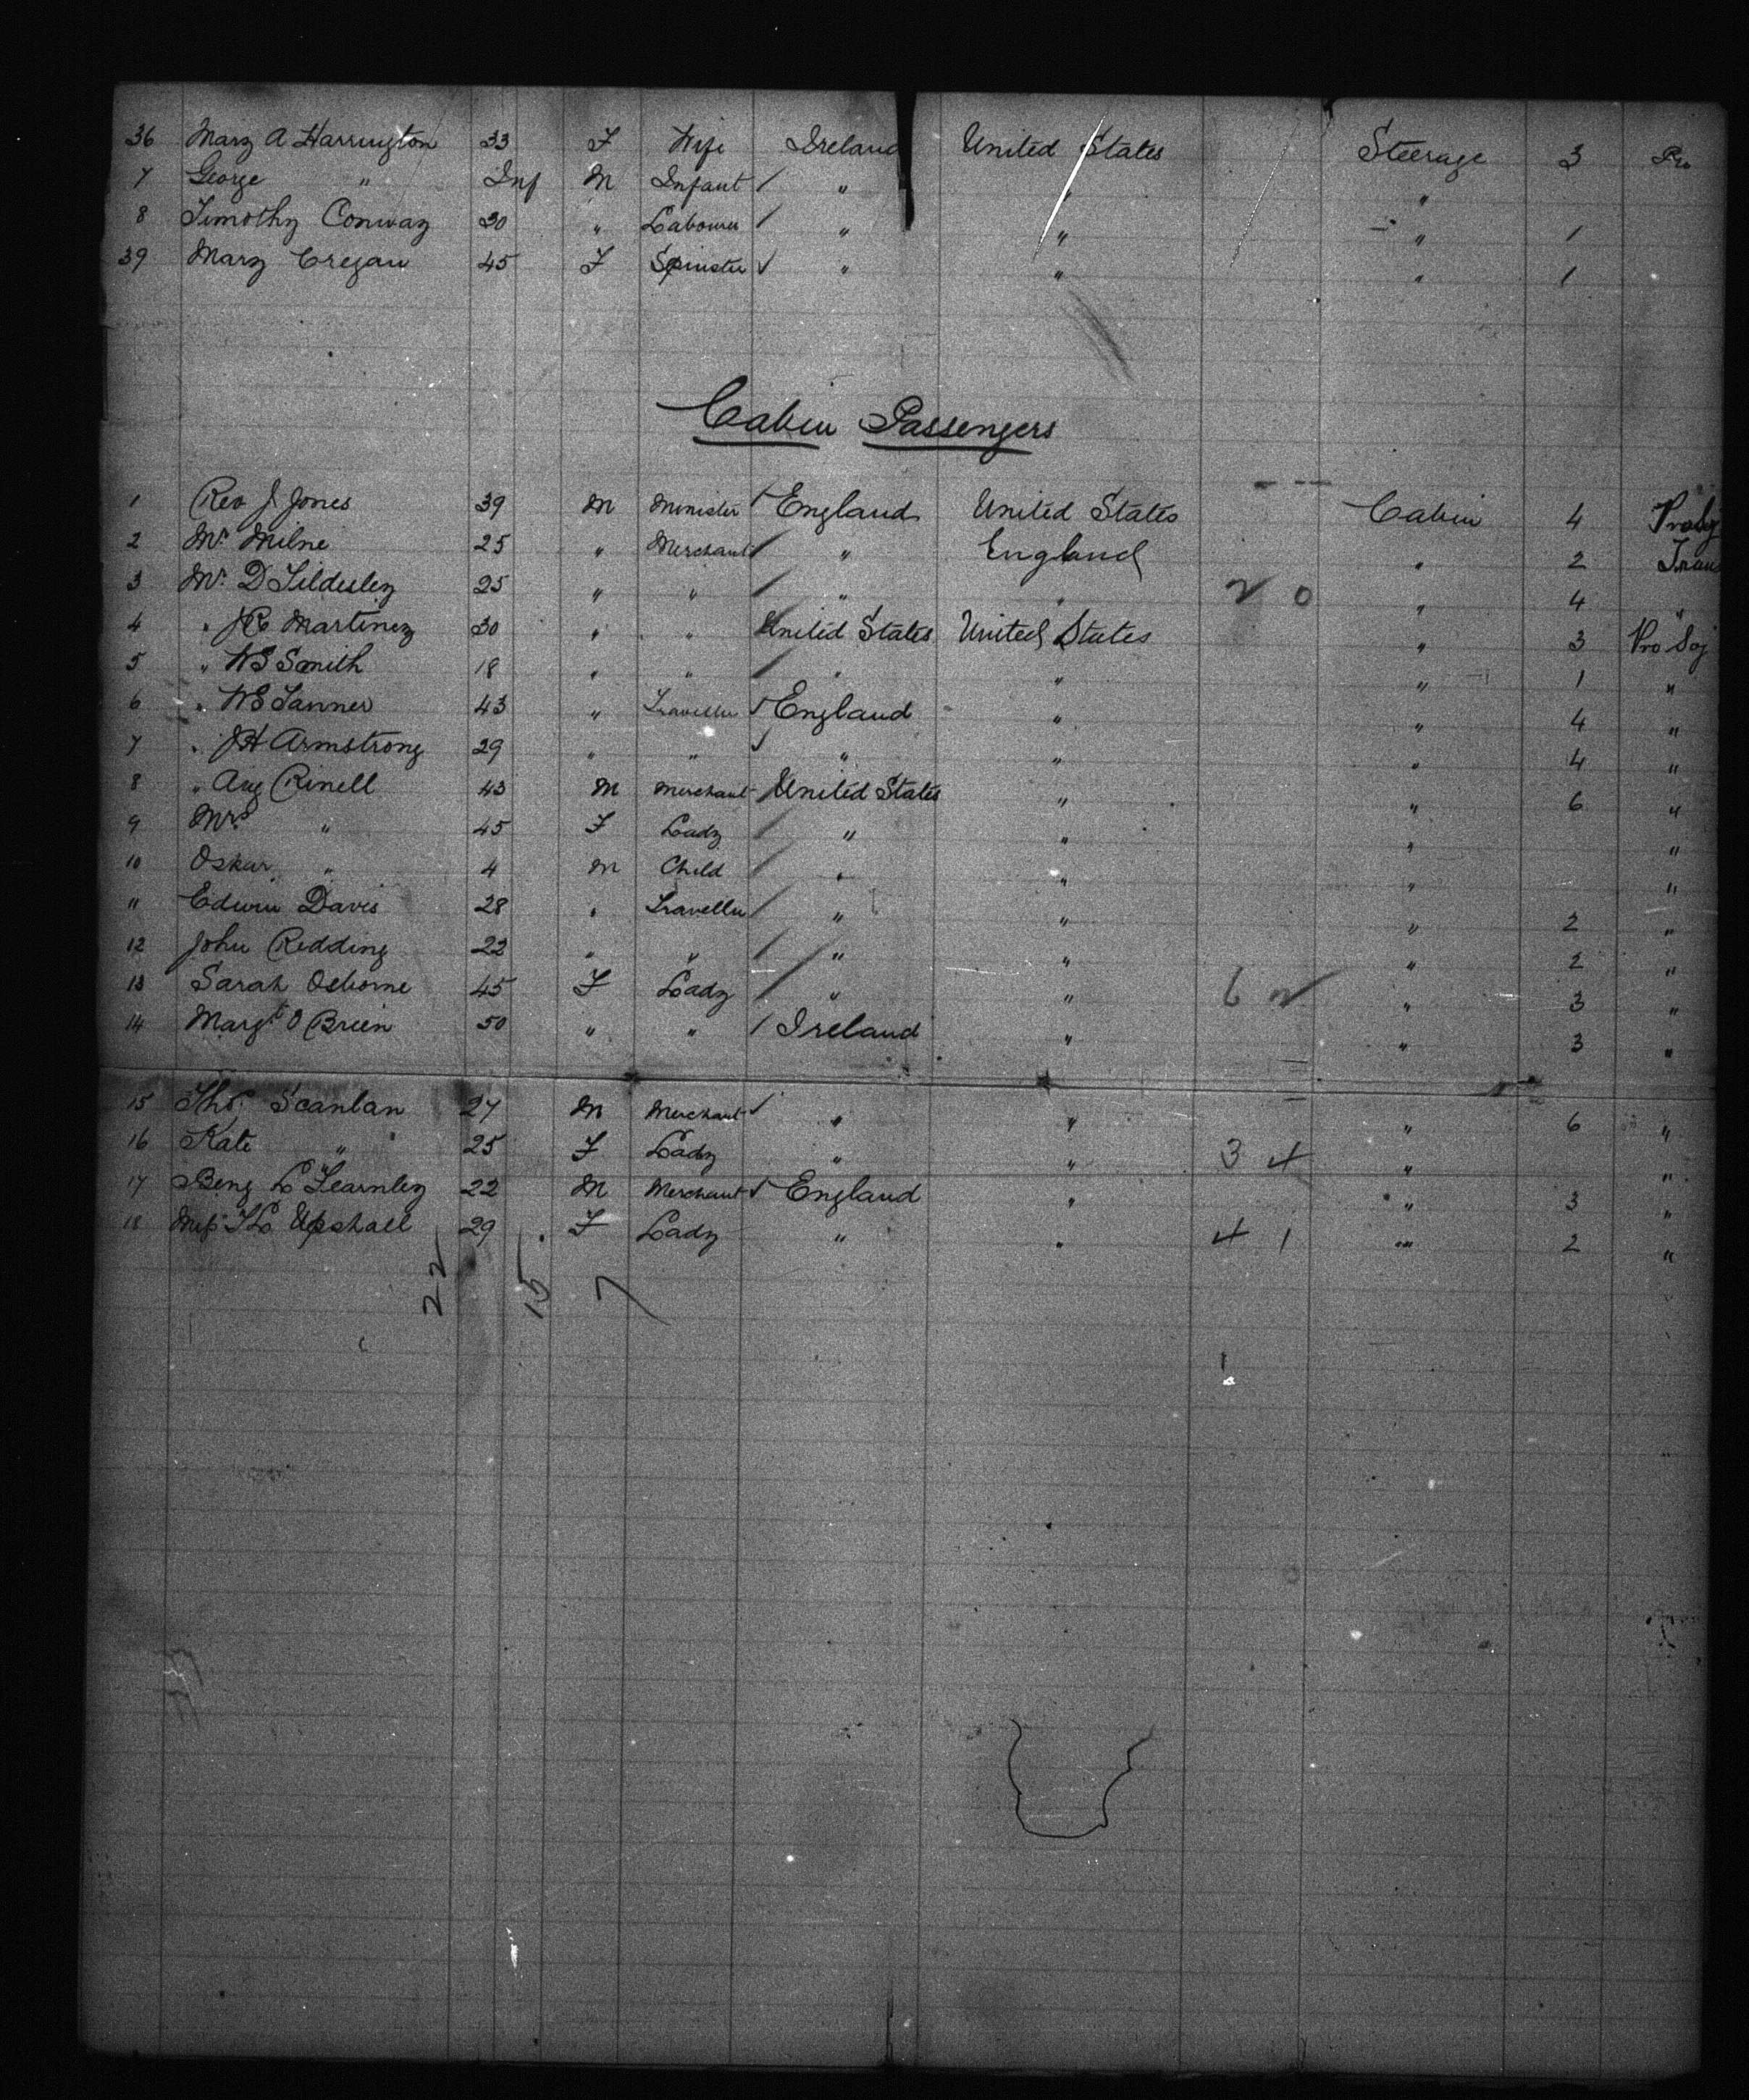 36 Mary A Harrington 33 F Wife Ireland United States Steerage 3 Pro
7 George " Inf M Infant / " " "
8 Timothy Conway 30 " Labourer / " " " 1
39 Mary Cregan 45 F Spinster ✓ " " " 1
Cabin Passengers
1 Rev J Jones 39 M Minister / England United States Cabin 4
2 Mr Milne 25 " Merchant / " England " 2 Trans
3 Mr D Tildesley 25 " " / " " 2 0 " 4 "
4 " J R Martinez 30 " " United States United States " 3 Pro Soj
5 " W S Smith 18 " " / " " " 1 "
6 " W E Tanner 43 " Traveller ✓ England " " 4 "
7 " J H Armstrong 29 " " ✓ " " " 4 "
8 " Aug Rinell 43 M Merchant / United States " " 6 "
9 Mrs " 45 F Lady / " " " "
10 Oskar " 4 M Child / " " " "
" Edwin Davis 28 " Traveller / " " " 2 "
12 John Redding 22 " " / " " " 2 "
13 Sarah Osborne 45 F Lady / " " 6 2 " 3 "
14 Margt O Brien 50 " " / Ireland " " 3 "
15 Thos Scanlan 27 M Merchant ✓ " " " 6 "
16 Kate " 25 F Lady " " 3 4 " "
17 Benj L Fearnley 22 M Merchant ✓ England " " 3 "
18 Miss F L Upshall 29 F Lady " " 4 1 " 2 "
22 15 7